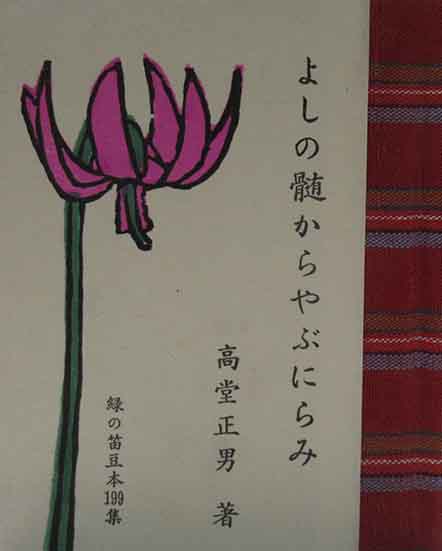 よしの髄からやぶにらみ
高堂正男 著
緑の笛豆本199集